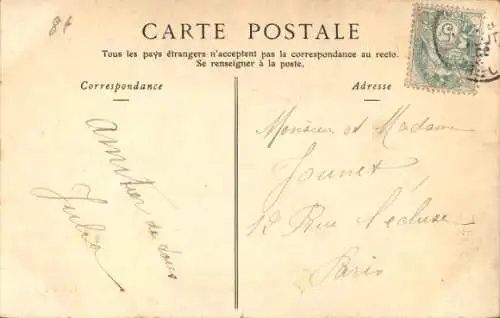 84
CARTE POSTALE
Tous les pays étrangers n'acceptent pas la correspondance au recto.
Se renseigner à la poste.
Correspondance
Adresse
amitier de tous
Julia
Monsieur et Madame
Jounet
12 Rue Lécluse
Paris
5